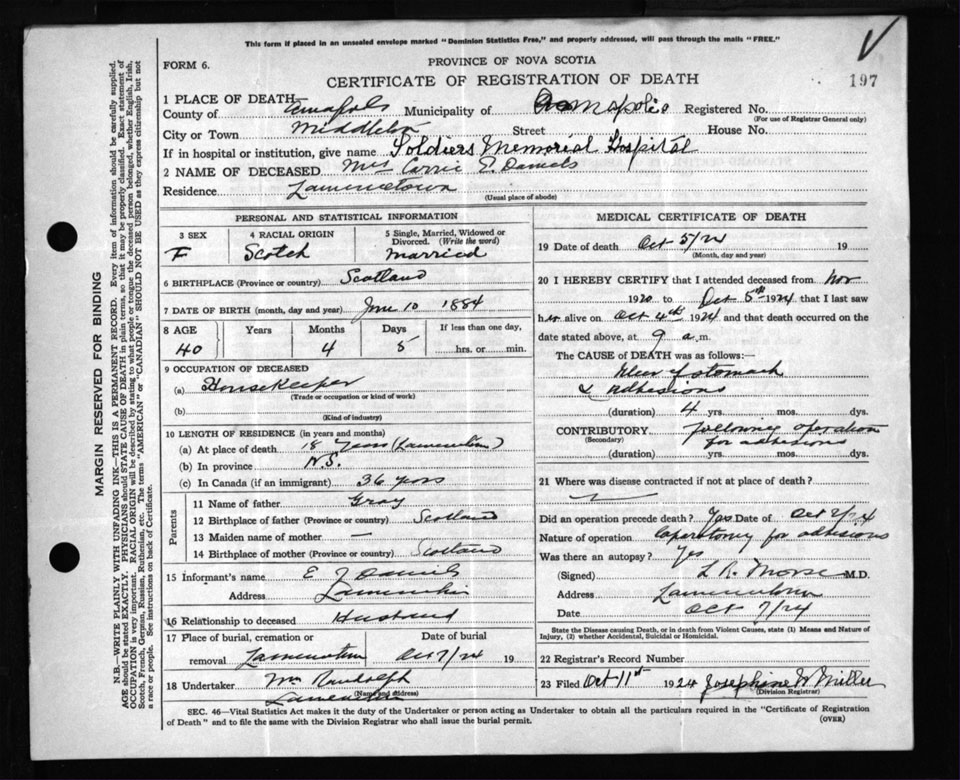 This form if placed in an unsealed envelope marked "Dominion Statistics Free," and properly addressed, will pass through the mails "FREE."
FORM 6.
PROVINCE OF NOVA SCOTIA
CERTIFICATE OF REGISTRATION OF DEATH
197
1 PLACE OF DEATH—
County of Municipality of Registered No.
(For use of Registrar General only)
City or Town Street House No.
If in hospital or institution, give name Soldiers Memorial Hospital
2 NAME OF DECEASED Mrs Carrie E. Daniels
Residence
(Usual place of abode)
PERSONAL AND STATISTICAL INFORMATION
3 SEX 4 RACIAL ORIGIN 5 Single, Married, Widowed or Divorced. (Write the word)
F Scotch Married
6 BIRTHPLACE (Province or country) Scotland
7 DATE OF BIRTH (month, day and year) June 10 1884
8 AGE Years Months Days If less than one day,
40 4 5 hrs. or min.
9 OCCUPATION OF DECEASED
(a) Housekeeper
(Trade or occupation or kind of work)
(b)
(Kind of industry)
10 LENGTH OF RESIDENCE (in years and months)
(a) At place of death 18 years
(b) In province N.S.
(c) In Canada (if an immigrant) 36 years
Parents
11 Name of father Gray
12 Birthplace of father (Province or country) Scotland
13 Maiden name of mother —
14 Birthplace of mother (Province or country) Scotland
15 Informant's name E J Daniels
Address
16 Relationship to deceased Husband
17 Place of burial, cremation or Date of burial
removal Oct 7/24 19
18 Undertaker Wm Randolph
(Name and address)
MEDICAL CERTIFICATE OF DEATH
19 Date of death Oct 5/24 19
(Month, day and year)
20 I HEREBY CERTIFY that I attended deceased from Nov
1920 to Oct 5th 1924 that I last saw
her alive on Oct 4th 1924 and that death occurred on the
date stated above, at 9 a.m.
The CAUSE of DEATH was as follows:—
Ulcer of stomach
& Adhesions
(duration) 4 yrs. mos. dys.
CONTRIBUTORY following operation
(Secondary) for adhesions
(duration) yrs. mos. dys.
21 Where was disease contracted if not at place of death?
Did an operation precede death? Yes Date of Oct 2/24
Nature of operation Laparotomy for adhesions
Was there an autopsy? Yes
(Signed) L R Morse M.D.
Address
Date Oct 7/24
State the Disease causing Death, or in death from Violent Causes, state (1) Means and Nature of
Injury, (2) whether Accidental, Suicidal or Homicidal.
22 Registrar's Record Number
23 Filed Oct 11th 1924 Josephine W Miller
(Division Registrar)
SEC. 46—Vital Statistics Act makes it the duty of the Undertaker or person acting as Undertaker to obtain all the particulars required in the "Certificate of Registration
of Death" and to file the same with the Division Registrar who shall issue the burial permit.
(OVER)
MARGIN RESERVED FOR BINDING
N.B.—WRITE PLAINLY WITH UNFADING INK—THIS IS A PERMANENT RECORD. Every item of information should be carefully supplied.
AGE should be stated EXACTLY. PHYSICIANS should STATE CAUSE OF DEATH in plain terms, so that it may be properly classified. Exact statement of
OCCUPATION is very important. RACIAL ORIGIN will be described by stating to what people or tongue the deceased person belonged, whether English, Irish,
Scotch, French, German, Russian, Ruthenian, etc. The terms "AMERICAN" or "CANADIAN" SHOULD NOT BE USED as they express citizenship but not
a race or people. See instructions on back of Certificate.